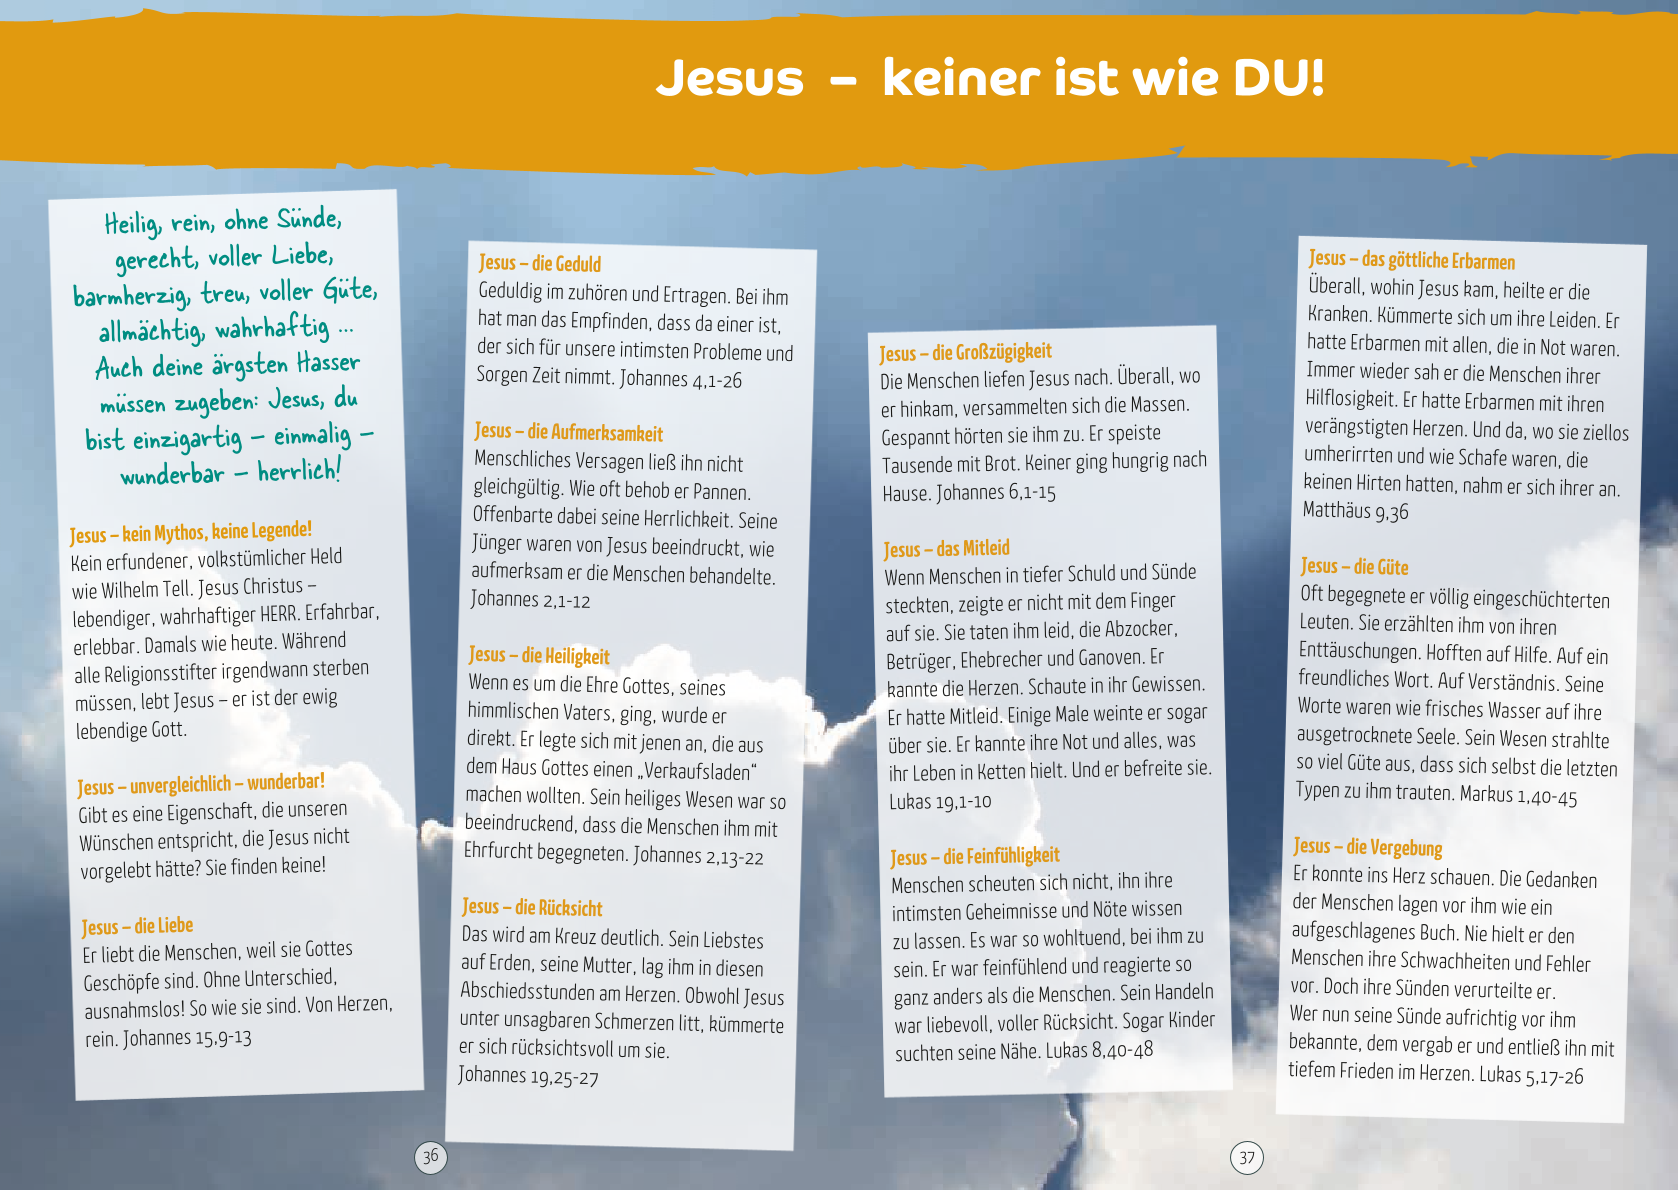 Jesus – keiner ist wie DU!
Heilig, rein, ohne Sünde,
gerecht, voller Liebe,
barmherzig, treu, voller Güte,
allmächtig, wahrhaftig ...
Auch deine ärgsten Hasser
müssen zugeben: Jesus, du
bist einzigartig – einmalig –
wunderbar – herrlich!
Jesus – kein Mythos, keine Legende!
Kein erfundener, volkstümlicher Held
wie Wilhelm Tell. Jesus Christus –
lebendiger, wahrhaftiger HERR. Erfahrbar,
erlebbar. Damals wie heute. Während
alle Religionsstifter irgendwann sterben
müssen, lebt Jesus – er ist der ewig
lebendige Gott.
Jesus – unvergleichlich – wunderbar!
Gibt es eine Eigenschaft, die unseren
Wünschen entspricht, die Jesus nicht
vorgelebt hätte? Sie finden keine!
Jesus – die Liebe
Er liebt die Menschen, weil sie Gottes
Geschöpfe sind. Ohne Unterschied,
ausnahmslos! So wie sie sind. Von Herzen,
rein. Johannes 15,9-13
Jesus – die Geduld
Geduldig im zuhören und Ertragen. Bei ihm
hat man das Empfinden, dass da einer ist,
der sich für unsere intimsten Probleme und
Sorgen Zeit nimmt. Johannes 4,1-26
Jesus – die Aufmerksamkeit
Menschliches Versagen ließ ihn nicht
gleichgültig. Wie oft behob er Pannen.
Offenbarte dabei seine Herrlichkeit. Seine
Jünger waren von Jesus beeindruckt, wie
aufmerksam er die Menschen behandelte.
Johannes 2,1-12
Jesus – die Heiligkeit
Wenn es um die Ehre Gottes, seines
himmlischen Vaters, ging, wurde er
direkt. Er legte sich mit jenen an, die aus
dem Haus Gottes einen „Verkaufsladen“
machen wollten. Sein heiliges Wesen war so
beeindruckend, dass die Menschen ihm mit
Ehrfurcht begegneten. Johannes 2,13-22
Jesus – die Rücksicht
Das wird am Kreuz deutlich. Sein Liebstes
auf Erden, seine Mutter, lag ihm in diesen
Abschiedsstunden am Herzen. Obwohl Jesus
unter unsagbaren Schmerzen litt, kümmerte
er sich rücksichtsvoll um sie.
Johannes 19,25-27
36
Jesus – die Großzügigkeit
Die Menschen liefen Jesus nach. Überall, wo
er hinkam, versammelten sich die Massen.
Gespannt hörten sie ihm zu. Er speiste
Tausende mit Brot. Keiner ging hungrig nach
Hause. Johannes 6,1-15
Jesus – das Mitleid
Wenn Menschen in tiefer Schuld und Sünde
steckten, zeigte er nicht mit dem Finger
auf sie. Sie taten ihm leid, die Abzocker,
Betrüger, Ehebrecher und Ganoven. Er
kannte die Herzen. Schaute in ihr Gewissen.
Er hatte Mitleid. Einige Male weinte er sogar
über sie. Er kannte ihre Not und alles, was
ihr Leben in Ketten hielt. Und er befreite sie.
Lukas 19,1-10
Jesus – die Feinfühligkeit
Menschen scheuten sich nicht, ihn ihre
intimsten Geheimnisse und Nöte wissen
zu lassen. Es war so wohltuend, bei ihm zu
sein. Er war feinfühlend und reagierte so
ganz anders als die Menschen. Sein Handeln
war liebevoll, voller Rücksicht. Sogar Kinder
suchten seine Nähe. Lukas 8,40-48
Jesus – das göttliche Erbarmen
Überall, wohin Jesus kam, heilte er die
Kranken. Kümmerte sich um ihre Leiden. Er
hatte Erbarmen mit allen, die in Not waren.
Immer wieder sah er die Menschen ihrer
Hilflosigkeit. Er hatte Erbarmen mit ihren
verängstigten Herzen. Und da, wo sie ziellos
umherirrten und wie Schafe waren, die
keinen Hirten hatten, nahm er sich ihrer an.
Matthäus 9,36
Jesus – die Güte
Oft begegnete er völlig eingeschüchterten
Leuten. Sie erzählten ihm von ihren
Enttäuschungen. Hofften auf Hilfe. Auf ein
freundliches Wort. Auf Verständnis. Seine
Worte waren wie frisches Wasser auf ihre
ausgetrocknete Seele. Sein Wesen strahlte
so viel Güte aus, dass sich selbst die letzten
Typen zu ihm trauten. Markus 1,40-45
Jesus – die Vergebung
Er konnte ins Herz schauen. Die Gedanken
der Menschen lagen vor ihm wie ein
aufgeschlagenes Buch. Nie hielt er den
Menschen ihre Schwachheiten und Fehler
vor. Doch ihre Sünden verurteilte er.
Wer nun seine Sünde aufrichtig vor ihm
bekannte, dem vergab er und entließ ihn mit
tiefem Frieden im Herzen. Lukas 5,17-26
37